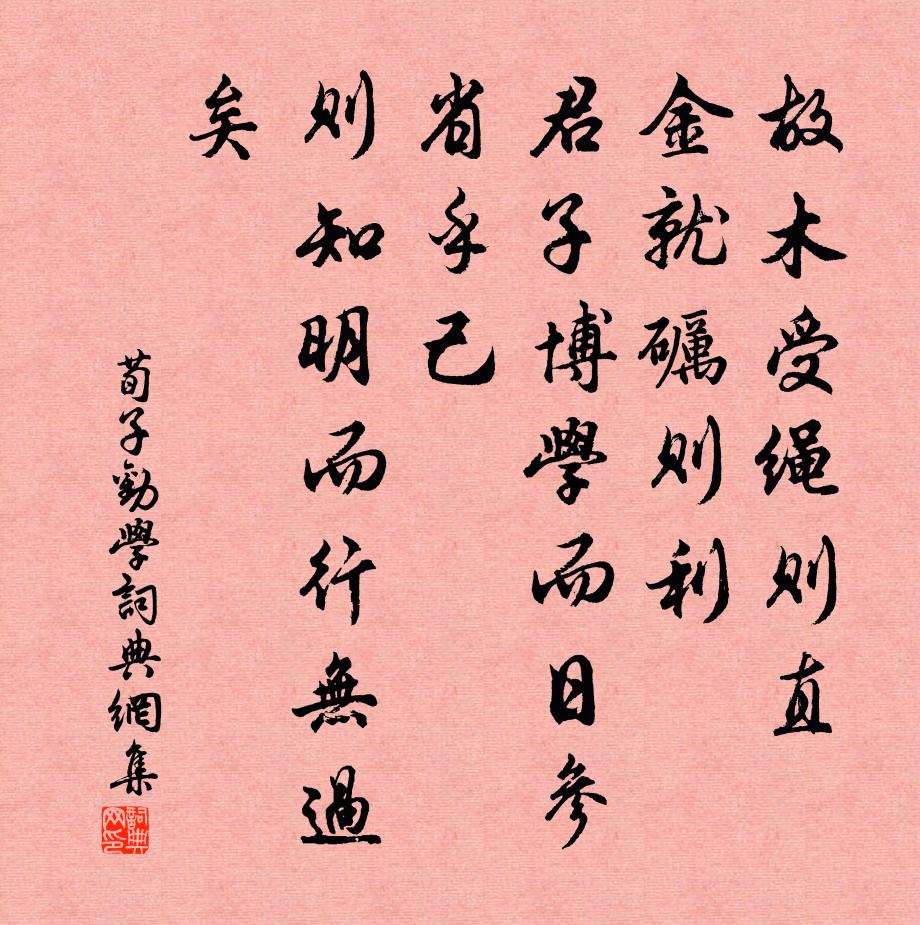 故木受绳則直
金就礪則利
君子博學而日參
省乎己
則知明而行無過
矣
荀子勸學詞典網集
詞典网印